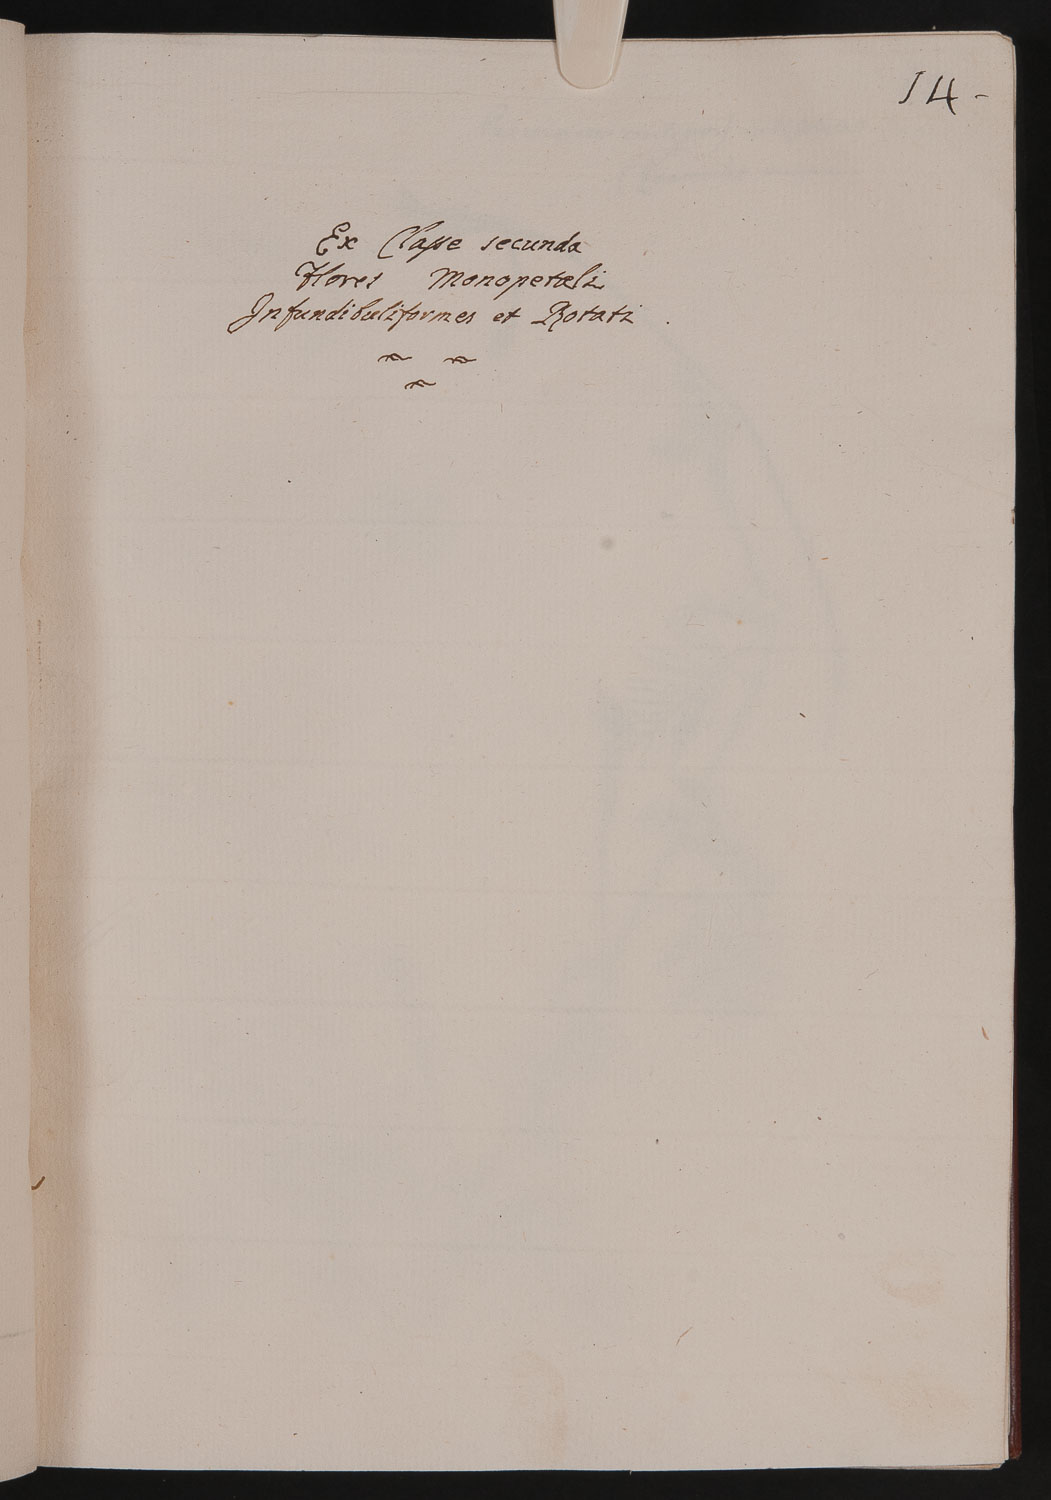 14-
Ex Classe secunda
Flores Monopetali
Infundibuliformes et Rotati.